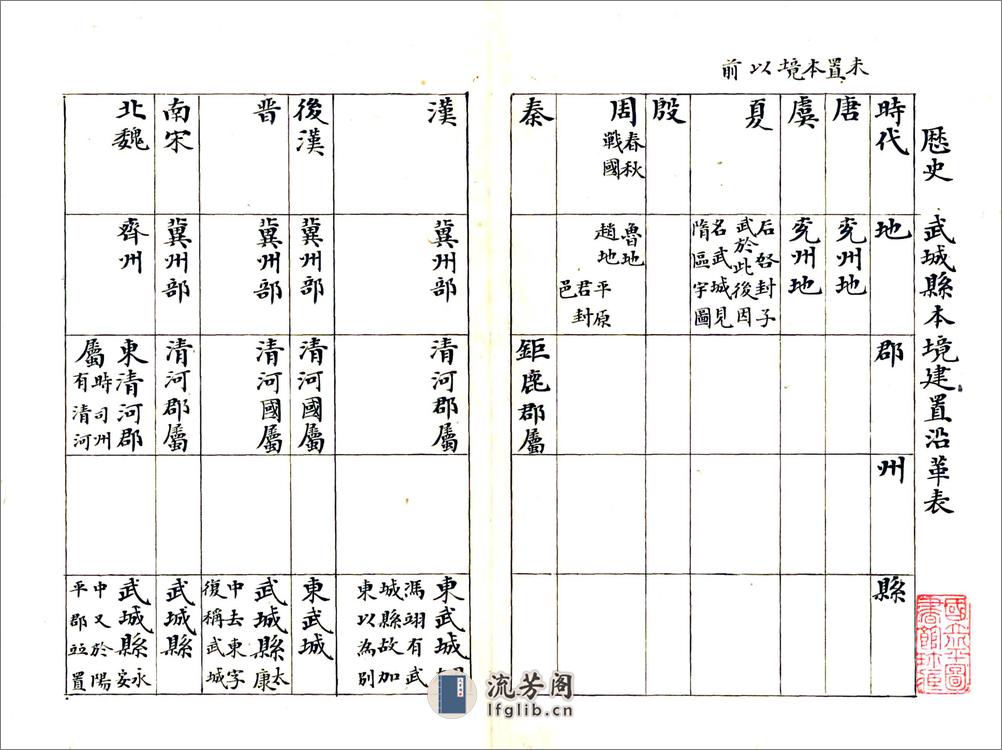 未置本境以前
歷史 武城縣本境建置沿革表
時代 地 郡 州 縣
唐 兗州地
虞 兗州地
夏 后啓封子
武於此後因
名武城見
隋區宇圖
殷
周 春秋
戰國
魯地
趙地 平原
君封
邑
秦 鉅鹿郡屬
漢 冀州部 清河郡屬 東武城
馮翊有武
城縣故加
東以為別
後漢 冀州部 清河國屬 東武城
晉 冀州部 清河國屬 武城縣 太康
中去東字
復稱武城
南宋 冀州部 清河郡屬 武城縣
北魏 齊州 東清河郡
屬 時司州
有清河
武城縣 永安
中又於陽
平郡竝置
流芳阁
lfglib.cn